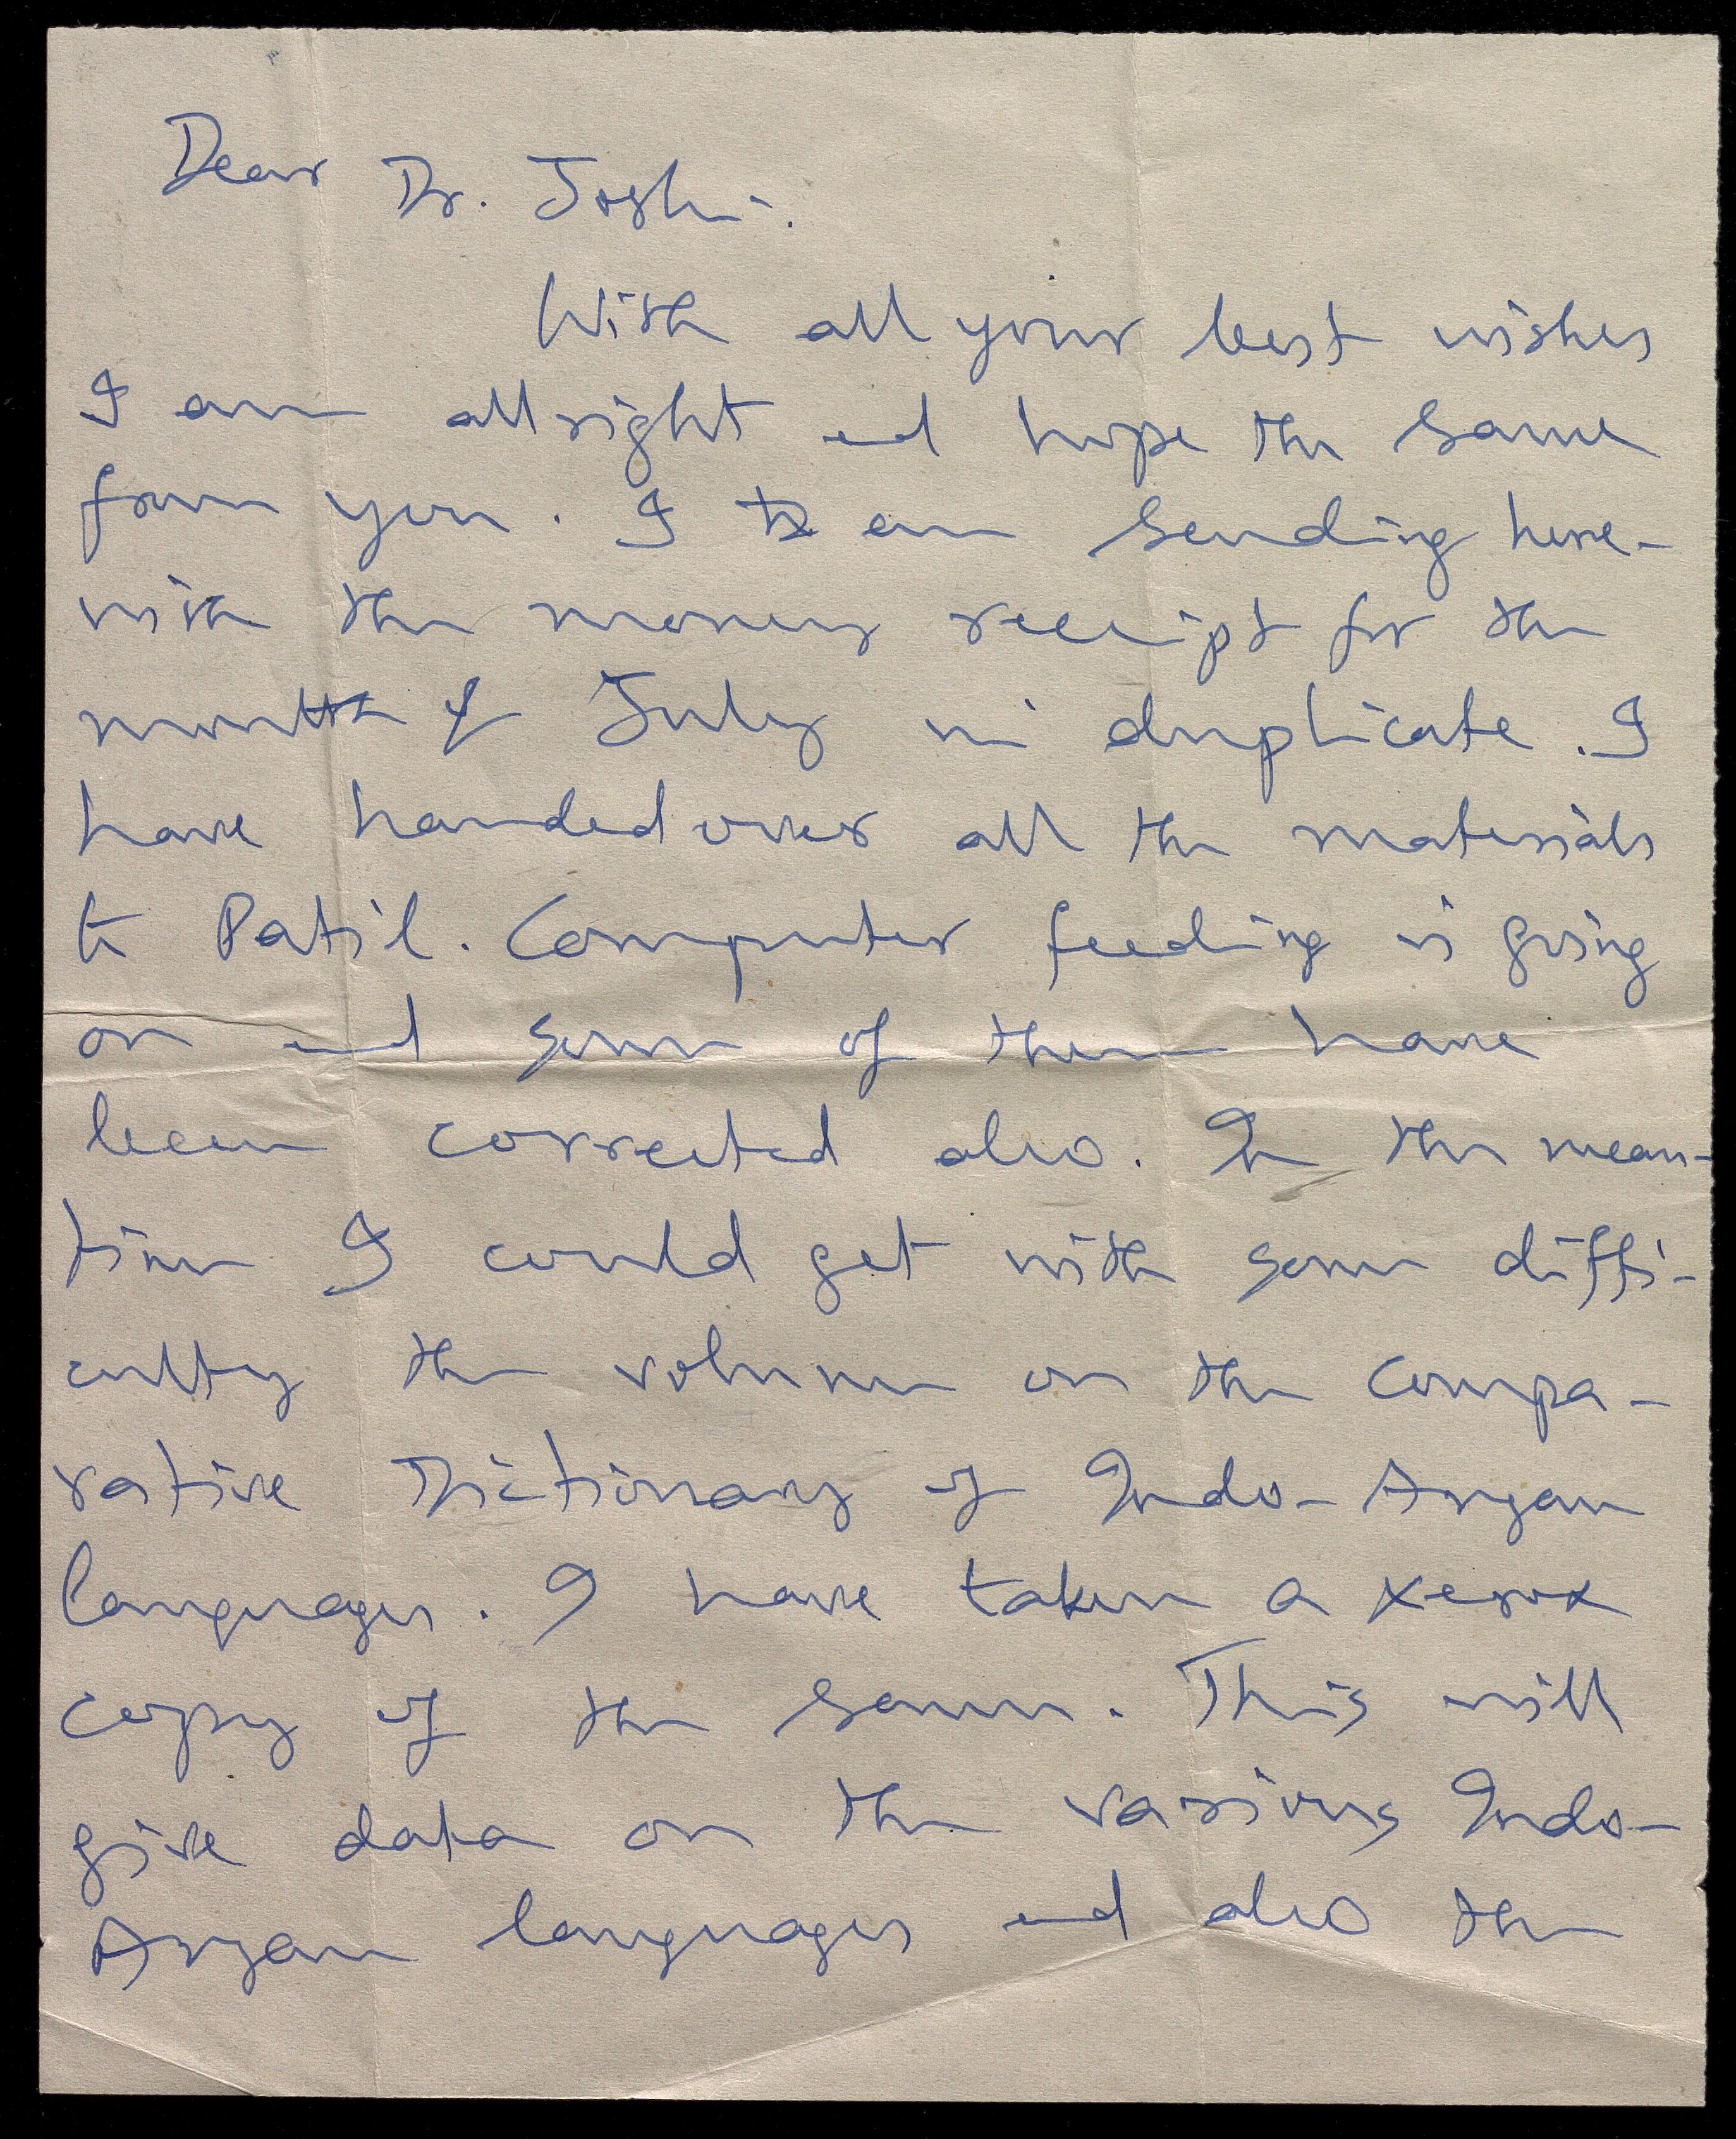 Dear Dr. Joshi.
With all your best wishes
I am allright and hope the same
from you. I am sending here-
with the money receipt for the
month of July in duplicate. I
have handed over all the materials
to Patil. Computer feeding is going
on and some of them have
been corrected also. In the mean-
time I could get with some diffi-
culty the volume on the Compa-
rative Dictionary of Indo-Aryan
languages. I have taken a xerox
copy of the same. This will
give data on the various Indo-
Aryan languages and also the